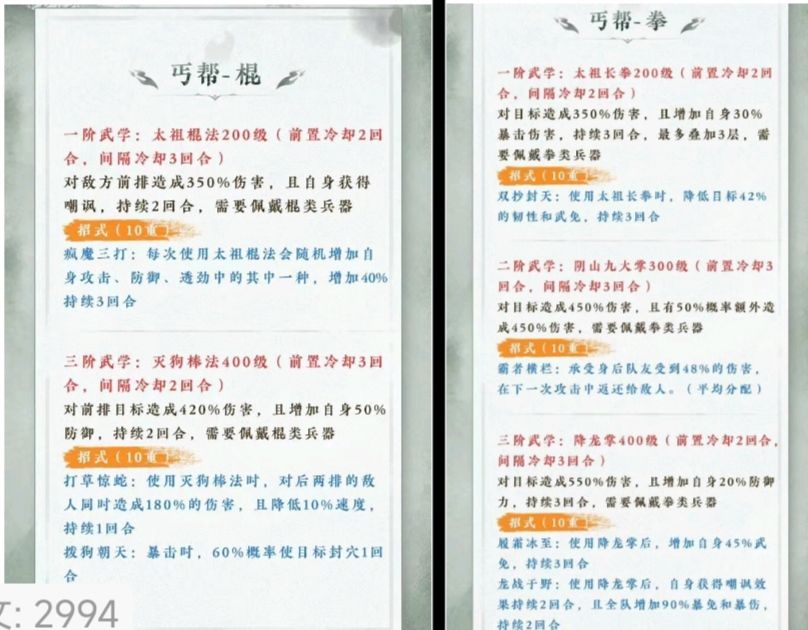 丐帮-棍
一阶武学：太祖棍法200级（前置冷却2回
合，间隔冷却3回合）
对敌方前排造成350%伤害，且自身获得
嘲讽，持续2回合，需要佩戴棍类兵器
招式（10重）
疯魔三打：每次使用太祖棍法会随机增加自
身攻击、防御、透劲中的其中一种，增加40%
持续3回合
三阶武学：灭狗棒法400级（前置冷却3回
合，间隔冷却2回合）
对前排目标造成420%伤害，且增加自身50%
防御，持续2回合，需要佩戴棍类兵器
招式（10重）
打草惊蛇：使用灭狗棒法时，对后两排的敌
人同时造成180%的伤害，且降低10%速度，
持续1回合
拨狗朝天：暴击时，60%概率使目标封穴1回
合
: 2994
丐帮-拳
一阶武学：太祖长拳200级（前置冷却2回
合，间隔冷却2回合）
对目标造成350%伤害，且增加自身30%
暴击伤害，持续3回合，最多叠加3层，需
要佩戴拳类兵器
招式（10重）
双抄封天：使用太祖长拳时，降低目标42%
的韧性和武免，持续3回合
二阶武学：阴山九大掌300级（前置冷却3
回合，间隔冷却3回合）
对目标造成450%伤害，且有50%概率额外造
成450%伤害，需要佩戴拳类兵器
招式（10重）
霸者横栏：承受身后队友受到48%的伤害，
在下一次攻击中返还给敌人。（平均分配）
三阶武学：降龙掌400级（前置冷却2回合，
间隔冷却3回合）
对目标造成550%伤害，且增加自身20%防御
力，持续3回合，需要佩戴拳类兵器
招式（10重）
履霜冰至：使用降龙掌后，增加自身45%武
免，持续3回合
龙战于野：使用降龙掌后，自身获得嘲讽效
果持续2回合，且全队增加90%暴免和暴伤，
持续2回合